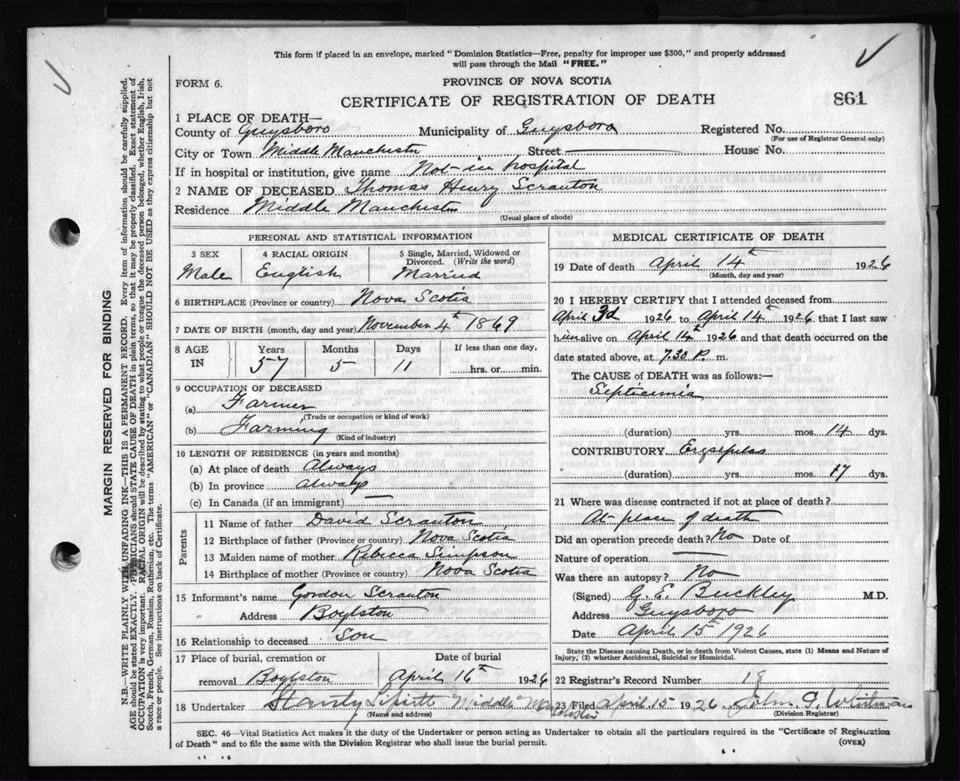 This form if placed in an envelope, marked "Dominion Statistics—Free, penalty for improper use $300," and properly addressed
will pass through the Mail "FREE."
FORM 6.
PROVINCE OF NOVA SCOTIA
CERTIFICATE OF REGISTRATION OF DEATH
861
1 PLACE OF DEATH—
County of Guysboro Municipality of Guysboro Registered No.
(For use of Registrar General only)
City or Town Middle Manchester Street — House No.
If in hospital or institution, give name Not in hospital
2 NAME OF DECEASED Thomas Henry Scranton
Residence Middle Manchester
(Usual place of abode)
PERSONAL AND STATISTICAL INFORMATION
3 SEX 4 RACIAL ORIGIN 5 Single, Married, Widowed or
Divorced. (Write the word)
Male English Married
6 BIRTHPLACE (Province or country) Nova Scotia
7 DATE OF BIRTH (month, day and year) November 4th 1869
8 AGE IN Years Months Days If less than one day,
57 5 11 hrs. or min.
9 OCCUPATION OF DECEASED
(a) Farmer
(Trade or occupation or kind of work)
(b) Farming
(Kind of industry)
10 LENGTH OF RESIDENCE (in years and months)
(a) At place of death Always
(b) In province Always
(c) In Canada (if an immigrant) —
Parents
11 Name of father David Scranton
12 Birthplace of father (Province or country) Nova Scotia
13 Maiden name of mother Rebecca Simpson
14 Birthplace of mother (Province or country) Nova Scotia
15 Informant's name Gordon Scranton
Address Boylston
16 Relationship to deceased Son
17 Place of burial, cremation or Date of burial
removal Boylston April 16th 1926
18 Undertaker Middle Manchester
(Name and address)
MEDICAL CERTIFICATE OF DEATH
19 Date of death April 14th 1926
(Month, day and year)
20 I HEREBY CERTIFY that I attended deceased from
April 3d 1926 to April 14th 1926 that I last saw
him alive on April 14th 1926 and that death occurred on the
date stated above, at 7.30 P. m.
The CAUSE of DEATH was as follows:—
Septicemia
(duration) yrs. mos. 14 dys.
CONTRIBUTORY Erysipelas
(duration) yrs. mos. 17 dys.
21 Where was disease contracted if not at place of death?
At place of death
Did an operation precede death? No Date of —
Nature of operation —
Was there an autopsy? No
(Signed) G. E. Buckley M.D.
Address Guysboro
Date April 15th 1926
State the Disease causing Death, or in death from Violent Causes, state (1) Means and Nature of
Injury, (2) whether Accidental, Suicidal or Homicidal.
22 Registrar's Record Number 18
23 Filed April 15 1926 Whitman
(Division Registrar)
SEC. 46—Vital Statistics Act makes it the duty of the Undertaker or person acting as Undertaker to obtain all the particulars required in the "Certificate of Registration
of Death" and to file the same with the Division Registrar who shall issue the burial permit.
(OVER)
MARGIN RESERVED FOR BINDING
N.B.—WRITE PLAINLY WITH UNFADING INK—THIS IS A PERMANENT RECORD. Every item of information should be carefully supplied.
AGE should be stated EXACTLY. PHYSICIANS should STATE CAUSE OF DEATH in plain terms, so that it may be properly classified. Exact statement of
OCCUPATION is very important. RACIAL ORIGIN will be described by stating to what people or tongue the deceased person belonged, whether English, Irish,
Scotch, French, German, Russian, Ruthenian, etc. The terms "AMERICAN" or "CANADIAN" SHOULD NOT BE USED as they express citizenship but not
a race or people. See instructions on back of Certificate.